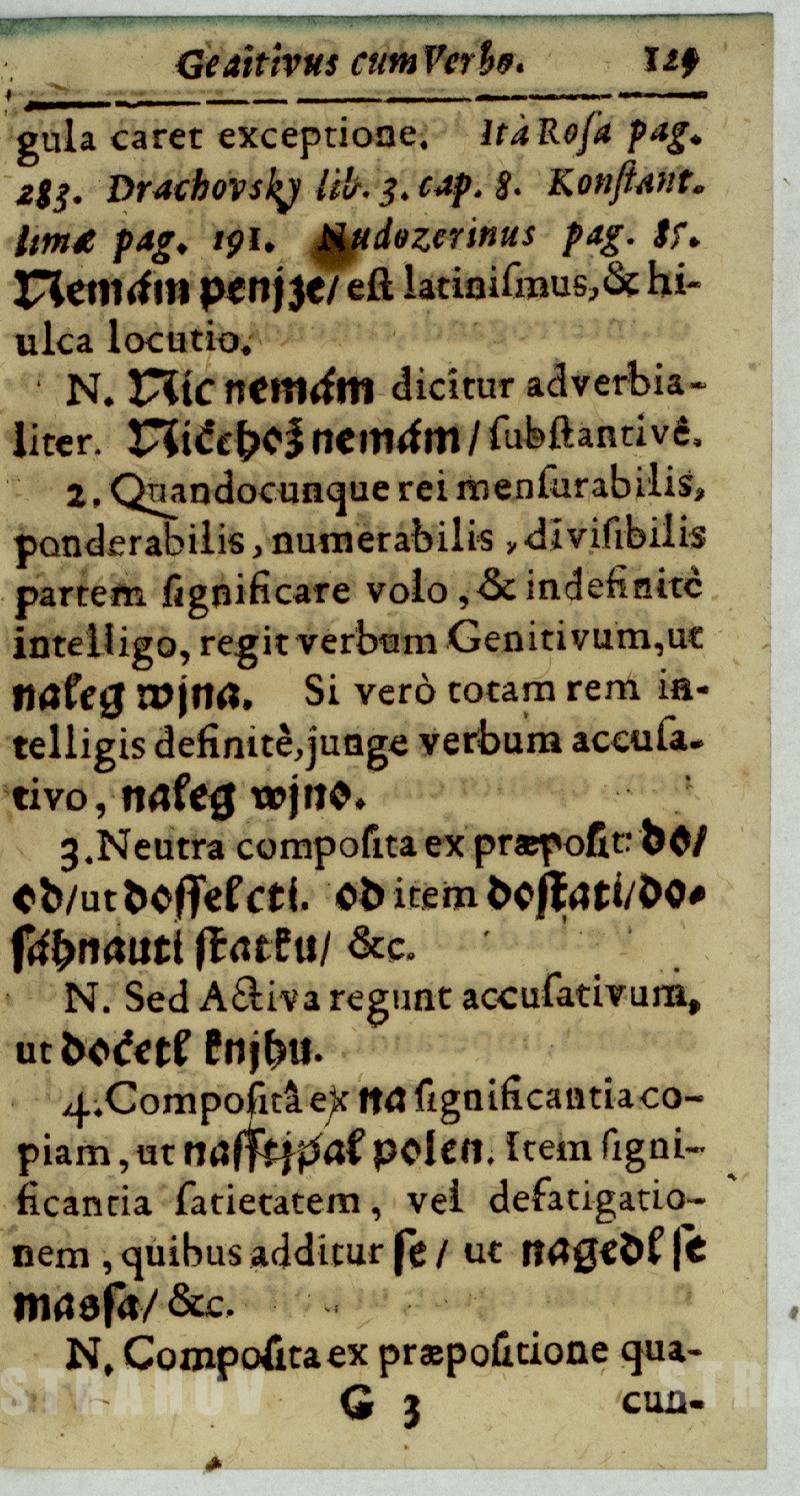 Genitivus cum Verbo. 129
gula caret exceptione. Ità Roſa pag.
283. Drachovsky lib. 3. cap. 8. Konſtant.
limæ pag. 191. Nudozerinus pag. 85.
Nemám penjze/ eſt latiniſmus, & hi-
ulca locutio.
N. Nic nemám dicitur adverbia-
liter. Ničehož nemám / ſubſtantivè.
2. Quandocunque rei menſurabilis,
ponderabilis, numerabilis, diviſibilis
partem ſignificare volo, & indefinitè
intelligo, regit verbum Genitivum, ut
naleg wjna. Si verò totam rem in-
telligis definitè, junge verbum accuſa-
tivo, naleg wjno.
3. Neutra compoſita ex præpoſit: do/
od/ ut doſſel cti. od item doſtati/ do-
ſáhnauti ſtatku/ &c.
N. Sed Activa regunt accuſativum,
ut dočetl knjhu.
4. Compoſitâ ex na ſignificantia co-
piam, ut naſſtjpal polen. Item ſigni-
ficantia ſatietatem, vel defatigatio-
nem, quibus additur ſe / ut nagedl ſe
maſa/ &c.
N. Compoſita ex præpoſitione qua-
G 3 cun-
STRAHOV